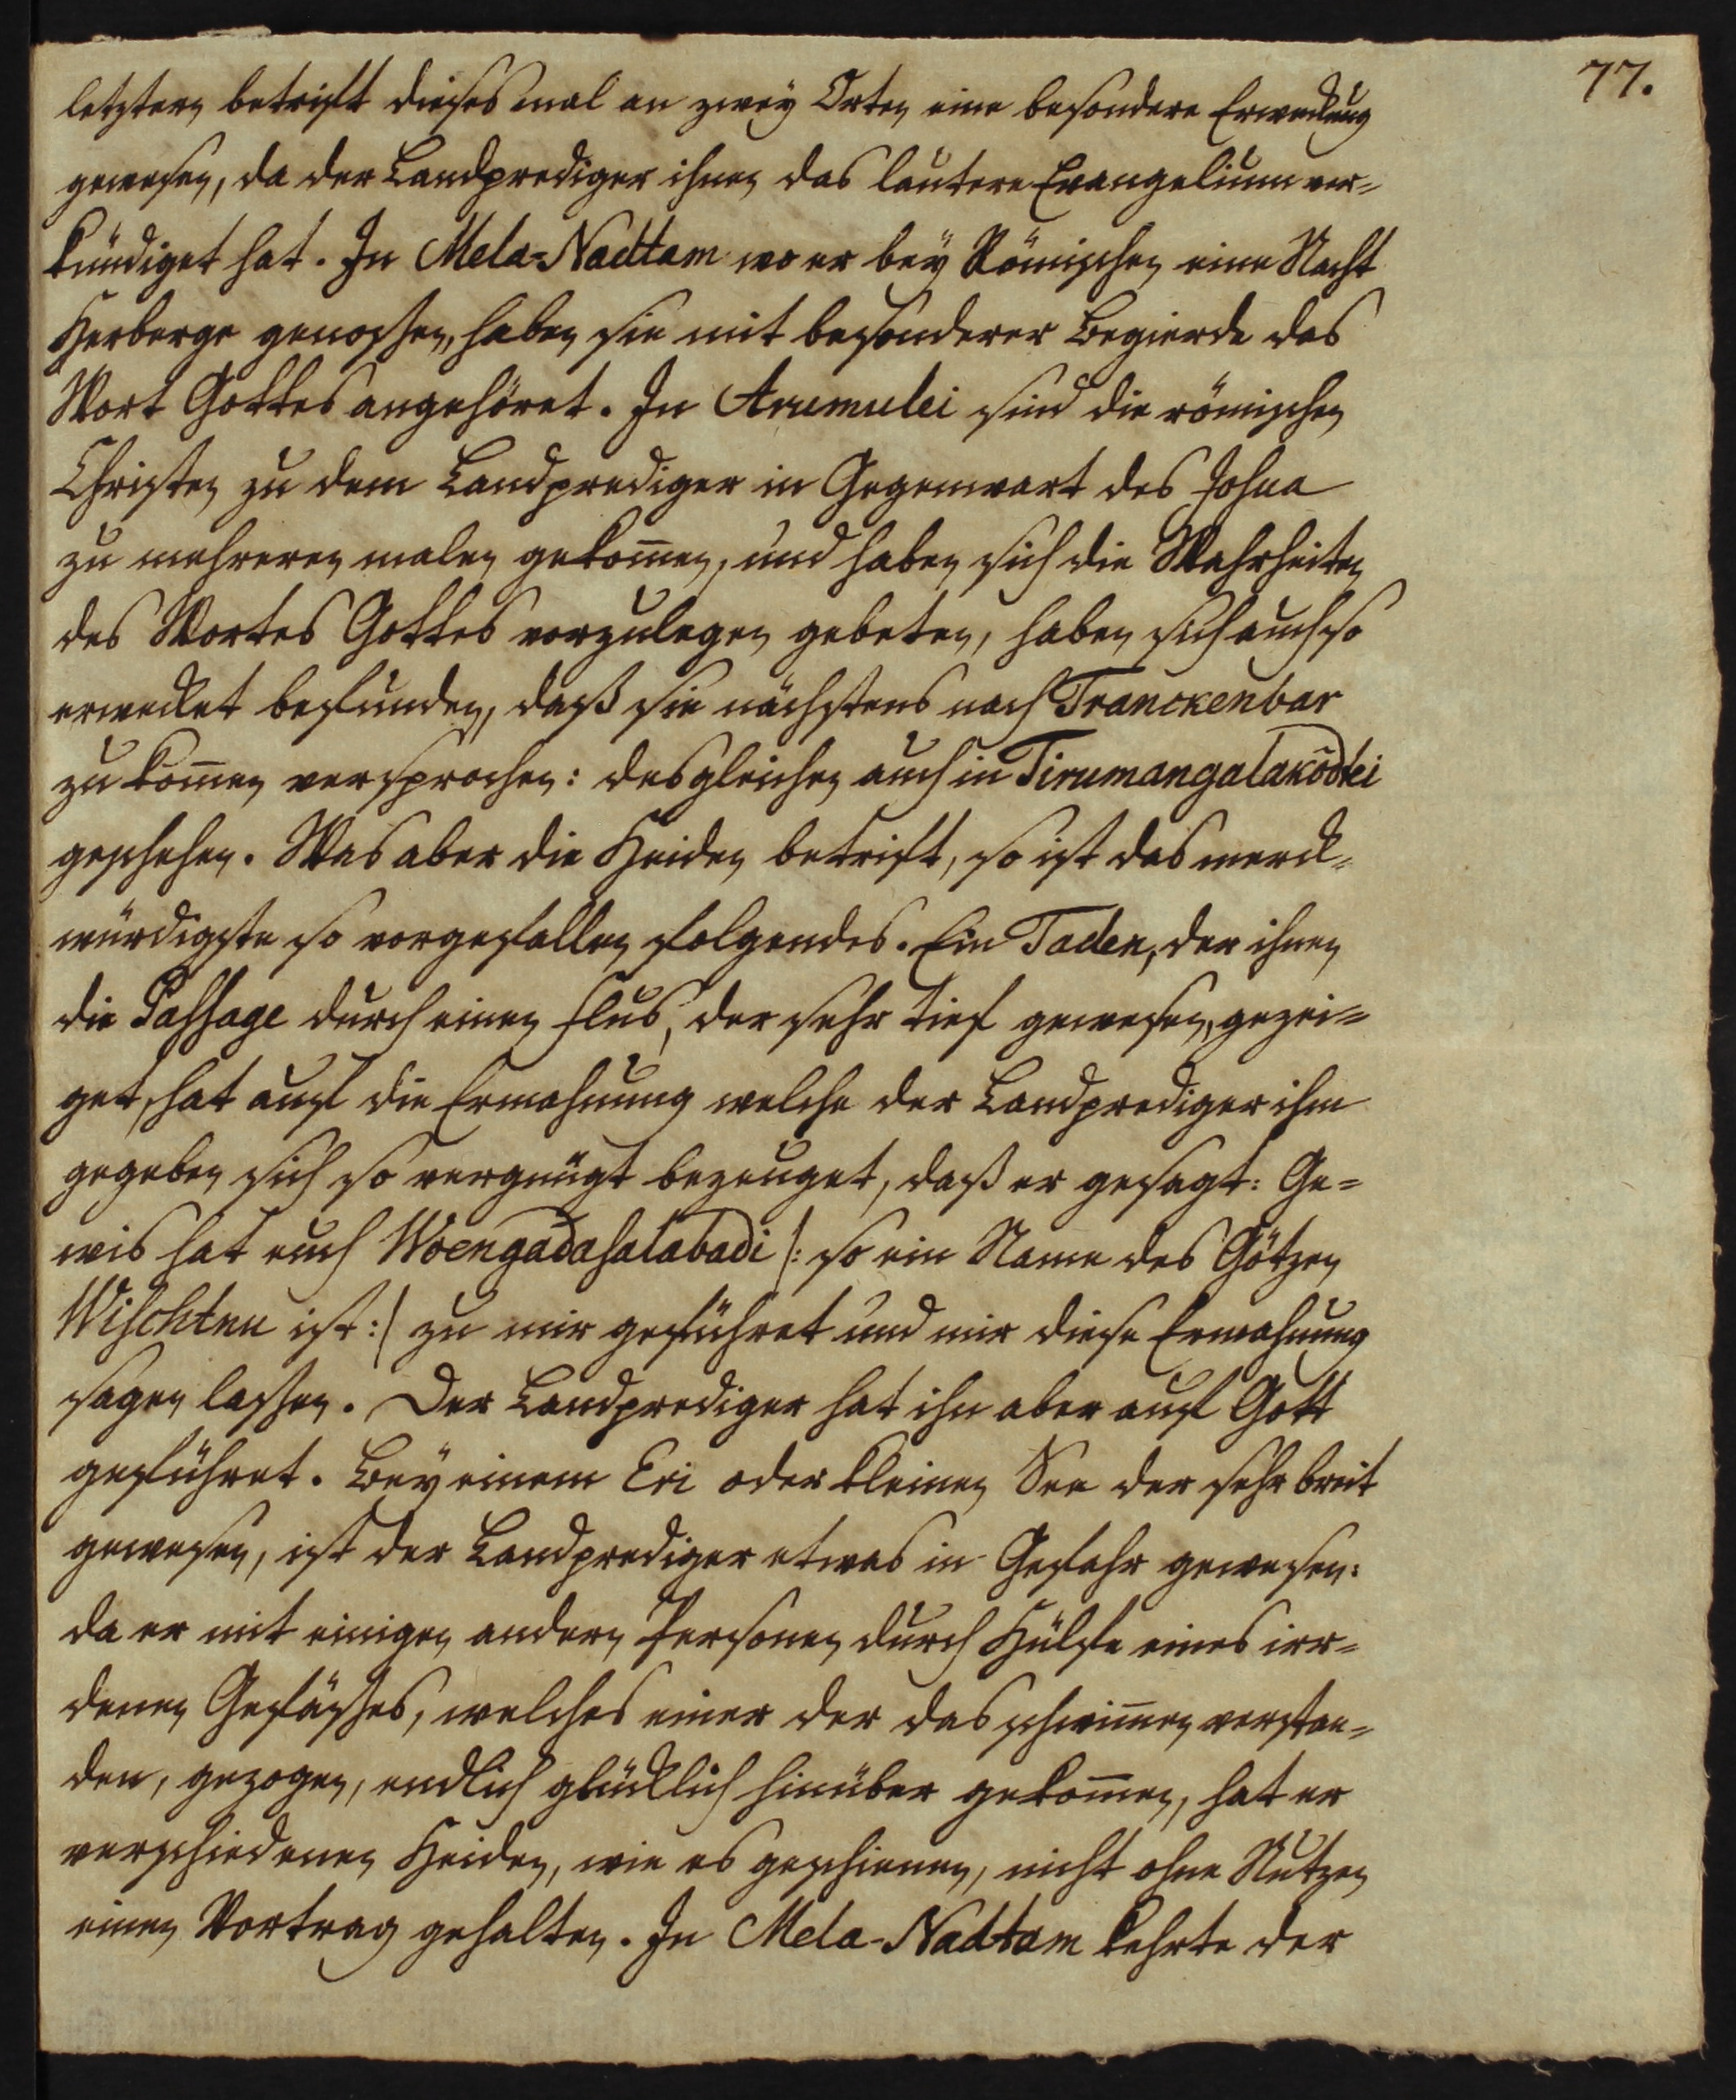 77.
letztern betrift dieses mal an zweÿ Orten eine besondere Erweckung
gewesen, da der Landprediger ihnen das lautere Evangelium ver=
kündiget hat. In Mela-Nadtam wo er beÿ Römischen eine Nacht
Herberge genossen, haben sie mit besonderer Begierde das
Wort Gottes angehöret. In Arumulei sind die römischen
Christen zu dem Landprediger in Gegenwart des Josua
zu mehreren malen gekom̄en, und haben sich die Wahrheiten
des Wortes Gottes vorzulegen gebeten, haben sich auch so
erwecket befunden, daß sie nächstens nach Tranckenbar
zu kom̄en versprochen: desgleichen auch in Tirumangalakōdtei
geschehen. Was aber die Heiden betrift, so ist das merck=
würdigste so vorgefallen folgendes. Ein Taden, der ihnen
die Passage durch einen Flus, der sehr tief gewesen, gezei=
get, hat auf die Ermahnung welche der Landprediger ihm
gegeben sich so vergnügt bezeuget, daß er gesagt: Ge=
wis hat euch Woengadasalabadi |: so ein Name des Götzen
Wischtnu ist :| zu mir geführet und mir diese Ermahnung
sagen lassen. Der Landprediger hat ihn aber auf Gott
geführet. Beÿ einem Eri oder kleinen See der sehr breit
gewesen, ist der Landprediger etwas in Gefahr gewesen:
da er mit einigen andern Personen durch Hülfe eines irr=
denen Gefässes, welches einer der das schwim̄en verstan=
den, gezogen, endlich glücklich hinüber gekom̄en, hat er
verschiedenen Heiden, wie es geschienen, nicht ohne Nutzen
einen Vortrag gehalten. In Mela-Nadtam kehrte der